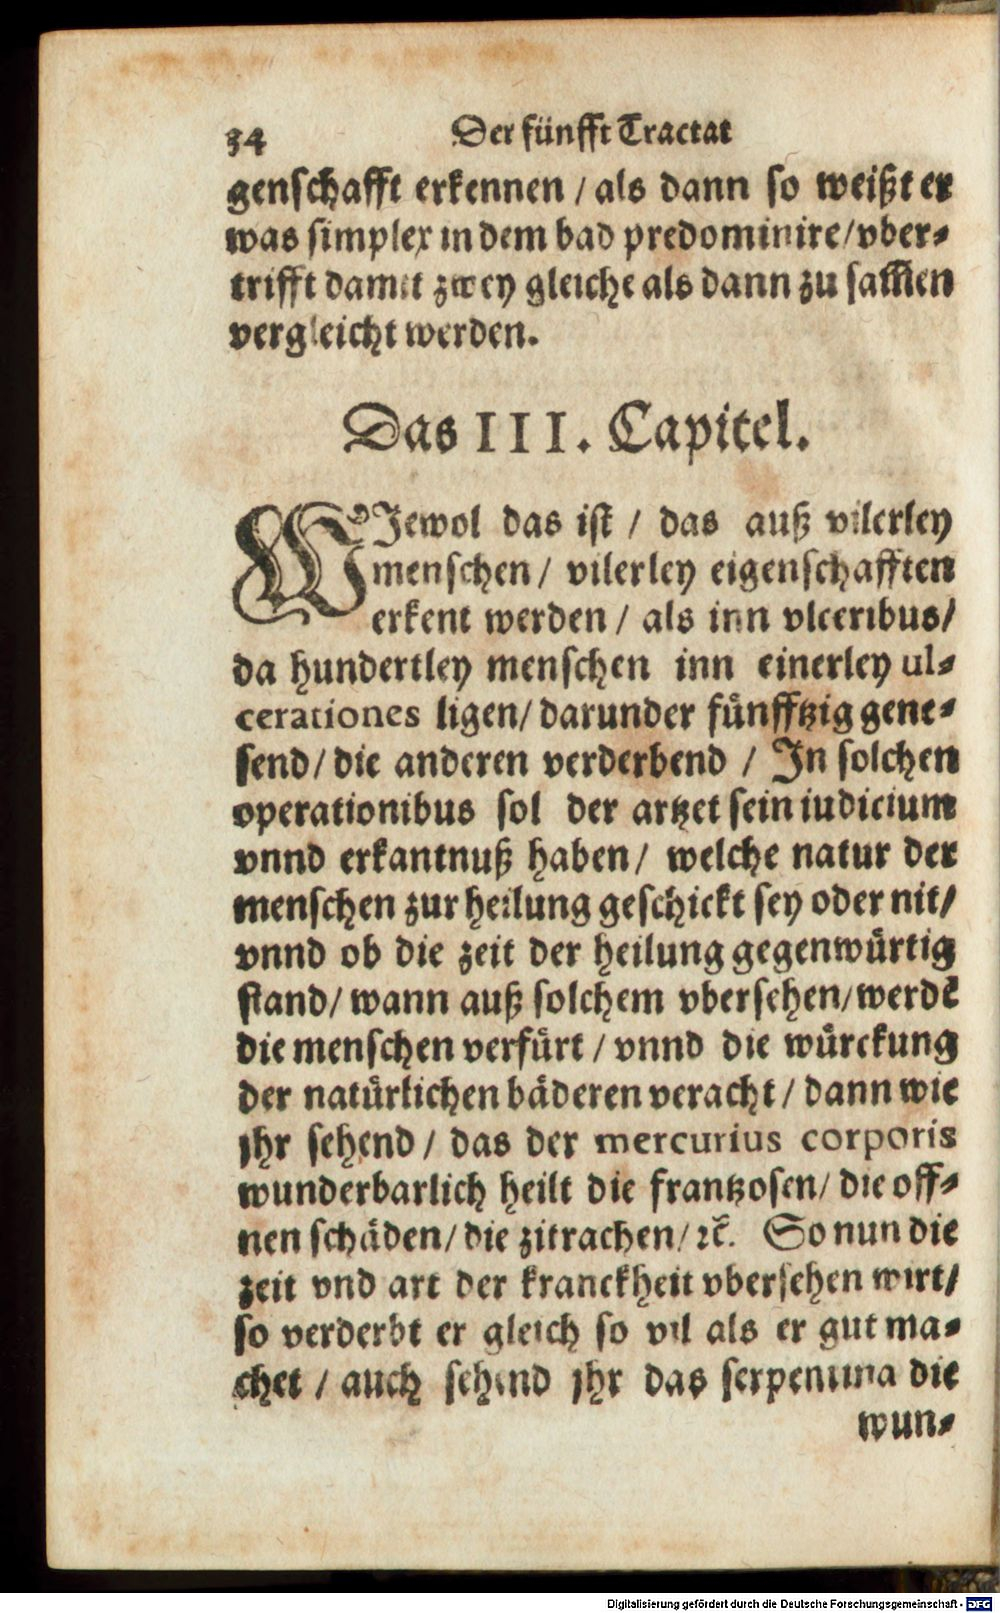 34 Der fünfft Tractat
genschafft erkennen / als dann so weißt er
was simplex in dem bad predominire/vber⸗
trifft damit zwey gleiche als dann zu sam̃en
vergleicht werden.
Das III. Capitel.
WJewol das ist / das auß vilerley
menschen / vilerley eigenschafften
erkent werden / als inn vlceribus/
da hundertley menschen inn einerley ul⸗
cerationes ligen/ darunder fünfftzig gene⸗
send/ die anderen verderbend / Jn solchen
operationibus sol der artzet sein iudicium
vnnd erkantnuß haben/ welche natur der
menschen zur heilung geschickt sey oder nit/
vnnd ob die zeit der heilung gegenwürtig
stand/ wann auß solchem vbersehen/werdẽ
die menschen verfürt / vnnd die würckung
der natürlichen bäderen veracht / dann wie
jhr sehend / das der mercurius corporis
wunderbarlich heilt die frantzosen/ die off⸗
nen schäden/ die zitrachen/ ꝛc̃. So nun die
zeit vnd art der kranckheit vbersehen wirt/
so verderbt er gleich so vil als er gut ma⸗
chet / auch sehend jhr das serpentina die
wun⸗
Digitalisierung gefördert durch die Deutsche Forschungsgemeinschaft - DFG